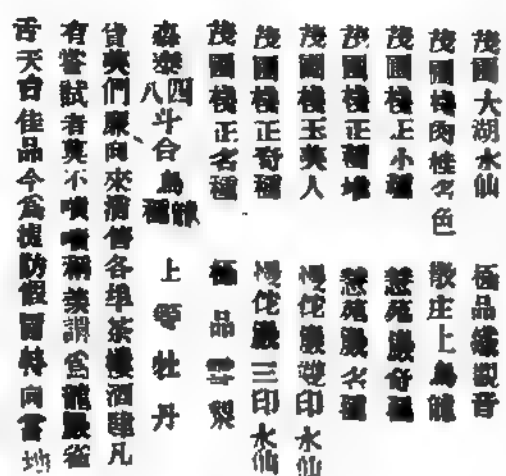 茂圃大湖水仙 極品鐵觀音
茂圃棧肉桂名色 散庄上烏龍
茂圃棧正小種 慧苑巖奇種
茂圃棧正種堆 慧苑巖名種
茂圃棧玉美人 幔佗巖雙印水仙
茂圃棧正奇種 幔佗巖三印水仙
茂圃棧正名種 極品雪梨
森泰 四八斗合烏龍種 上等牡丹
貨英們壓向來消售各埠茶樓酒肆凡
有嘗試者莫不嘖嘖稱羨謂爲龍巖雀
舌天台佳品今爲提防假冒特向當地